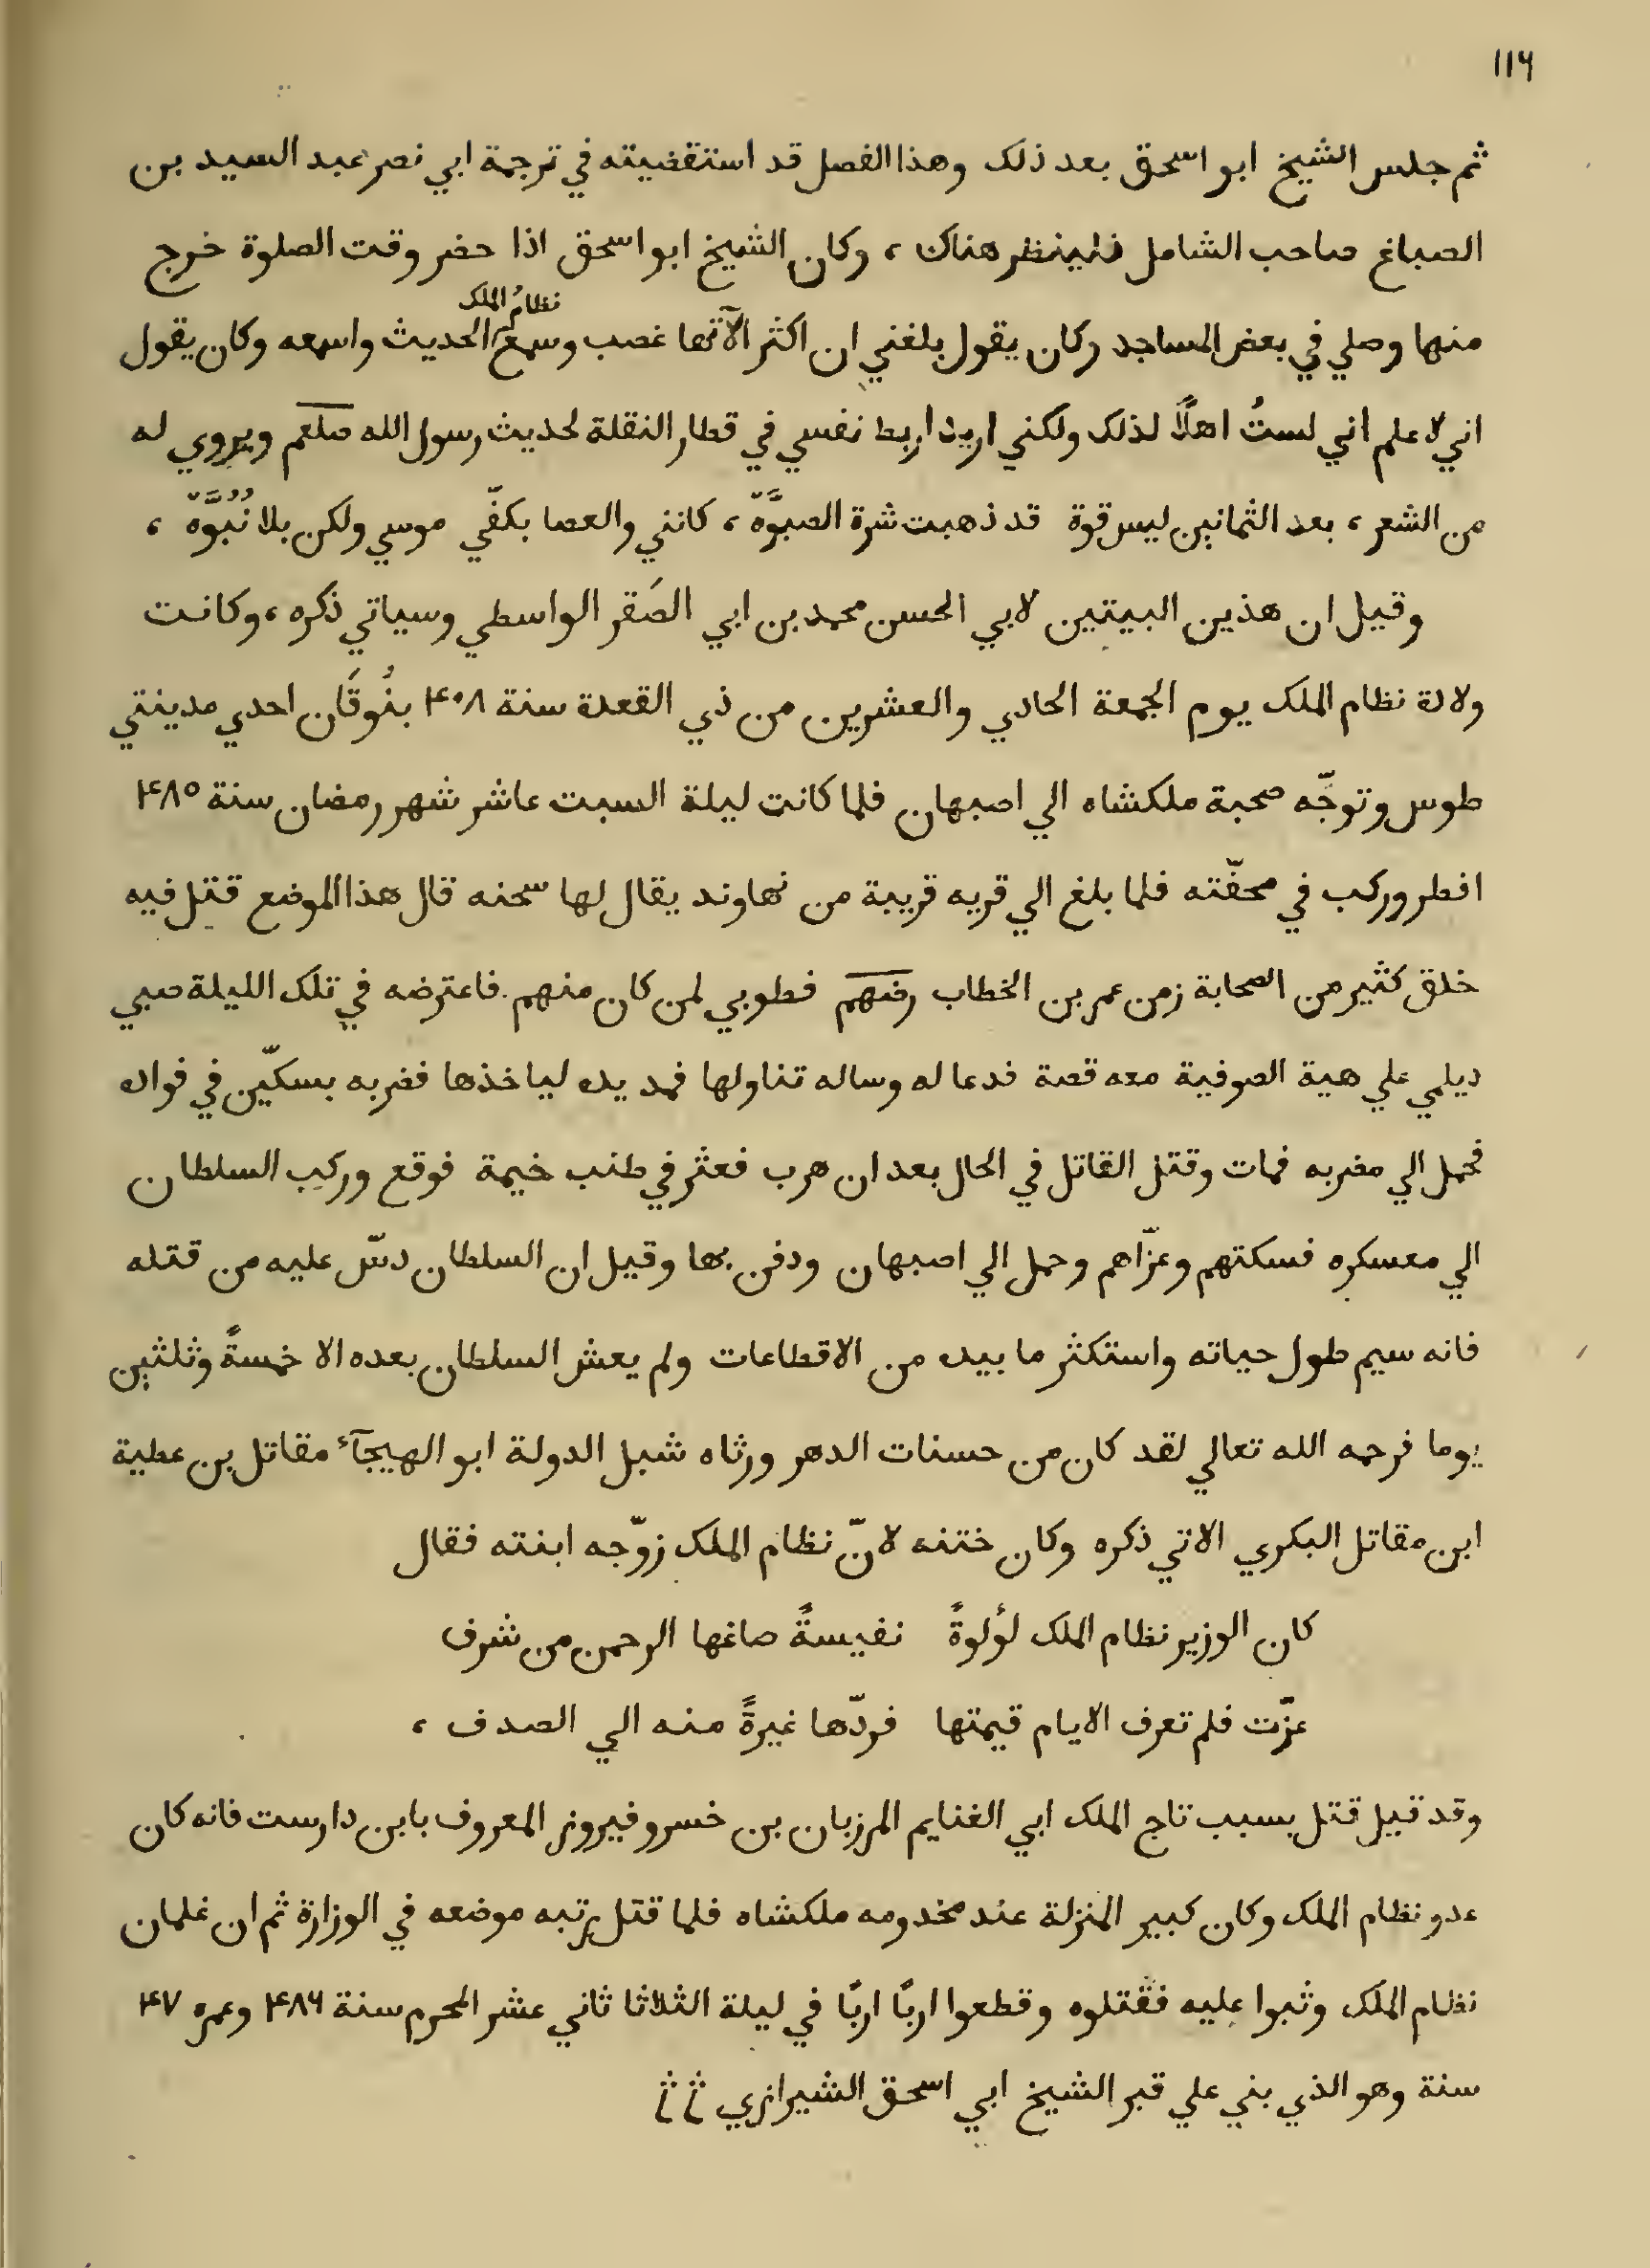 ١١٦
ثم جلس الشيخ ابو اسحق بعد ذلك وهذا الفصل قد استقضيته في ترجمة ابي نصر عبد السيد بن
الصباغ صاحب الشامل فلينظر هناك ، وكان الشيخ ابو اسحق اذا حضر وقت الصلوة خرج
نظامُ الملك
منها وصلي في بعض المساجد وكان يقول بلغني ان اكثر الآتها غصب وسمع الحديث واسمعه وكان يقول
اني لاعلم اني لستُ اهلًا لذلك ولكني اريد اربط نفسي في قطار النقلة لحديث رسول الله صلعم ويروي له
من الشعر ، بعد الثمانين ليس قوة قد ذهبت شرة الصبوَّة ، كانني والعصا بكفّي موسي ولكن بلا نُبُوَّة ،
وقيل ان هذين البيتين لابي الحسن محمد بن ابي الصَقر الواسطي وسياتي ذكره ، وكانت
ولادة نظام الملك يوم الجمعة الحادي والعشرين من ذي القعدة سنة ۴٠٨ بنُوقَان احدي مدينتي
طوس وتوجّه صحبة ملكشاه الي اصبهان فلما كانت ليلة السبت عاشر شهر رمضان سنة ۴٨٥
افطر وركب في محفّته فلما بلغ الي قريه قريبة من نهاوند يقال لها سحنه قال هذا الموضع قتل فيه
خلق كثير من الصحابة زمن عمر بن الخطاب رضهم فطوبي لمن كان منهم. فاعترضه في تلك الليلة صبي
ديلمي علي هية الصوفية معه قصة فدعا له وساله تناولها فمد يده لياخذها فضربه بسكّين في فواده
فحمل الي مضربه فمات وقتل القاتل في الحال بعد ان هرب فعثر في طنب خيمة فوقع وركب السلطان
الي معسكره فسكتهم وعزّاهم وحمل الي اصبهان ودفن بها وقيل ان السلطان دسّ عليه من قتله
فانه سيم طول حياته واستكثر ما بيده من الاقطاعات ولم يعش السلطان بعده الا خمسةً وثلثين
يوما فرحمه الله تعالي لقد كان من حسنات الدهر ورثاه شبل الدولة ابو الهيجآء مقاتل بن عطية
ابن مقاتل البكري الاتي ذكره وكان ختنه لانّ نظام الملك زوّجه ابنته فقال
كان الوزير نظام الملك لؤلوةً نفيسةً صاغها الرحمن من شرف
عزّت فلم تعرف الايام قيمتها فردّها غيرةً منه الي الصدف ،
وقد قيل قتل بسبب تاج الملك ابي الغنايم المرزبان بن خسرو فيروز المعروف بابن دارست فانه كان
عدو نظام الملك وكان كبير المنزلة عند مخدومه ملكشاه فلما قتل رتبه موضعه في الوزارة ثم ان غلمان
نظام الملك وثبوا عليه فقتلوه وقطعوا اربًا اربًا في ليلة الثلاثا ثاني عشر المحرم سنة ۴٨٦ وعمره ۴٧
سنة وهو الذي بني علي قبر الشيخ ابي اسحق الشيرازي